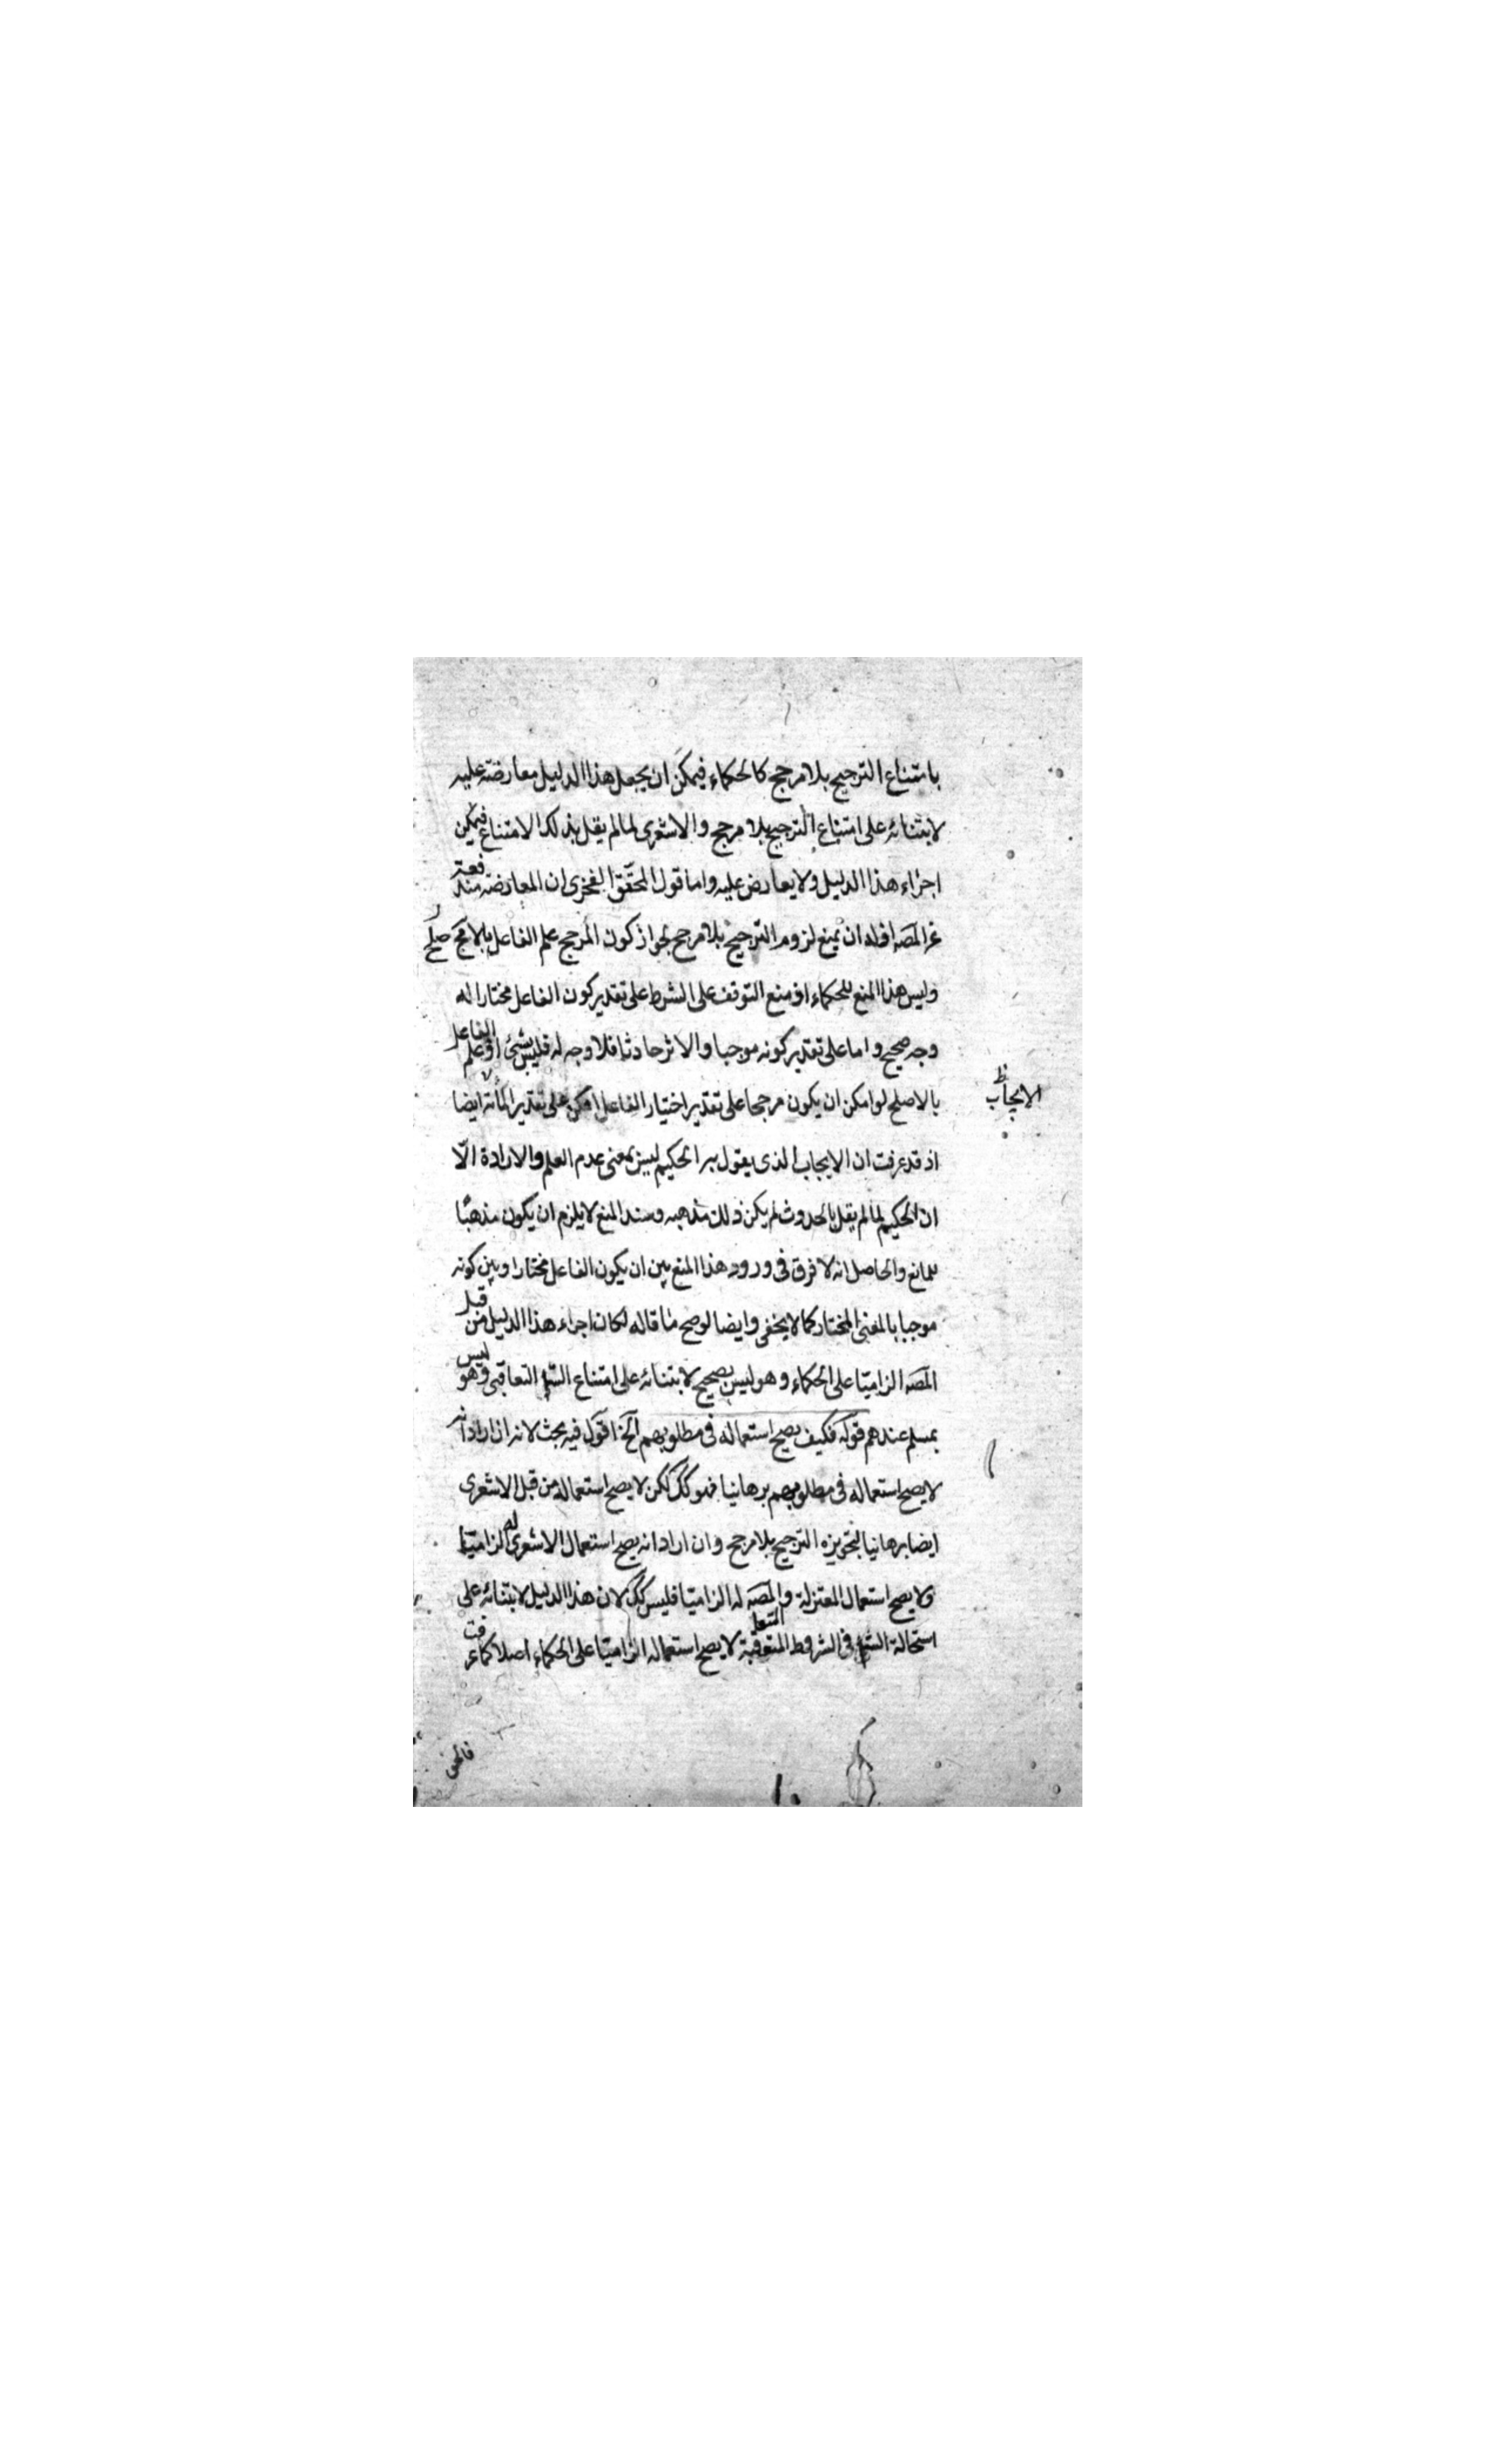 بامتناع الترجيح بلا مرجح كالحكماء فيمكن ان يجعل هذا الدليل معارضة عليه
لابتنائه على امتناع الترجيح بلا مرجح والاشعرى لما لم يقل بذلك الامتناع فيمكن
اجراء هذا الدليل ولا يعارض عليه واما قول المحقق الفخرى ان المعارضة مندفعة
عن المصه اذ له ان يمنع لزوم الترجيح بلا مرجح لجواز كون المرجح علم الفاعل بالاصلح
وليس هذا المنع للحكماء اذ منع التوقف على الشرط على تقدير كون الفاعل مختارا له
وجه صحيح واما على تقدير كونه موجبا والاثر حادثا فلا وجه له فليس بشئ اذ علم الفاعل
بالاصلح لو امكن ان يكون مرجحا على تقدير اختيار الفاعل لامكن على تقدير ايضا
الايجاب ظ
اذ قد عرفت ان الايجاب الذى يقول به الحكيم ليس بمعنى عدم العلم والارادة الّا
ان الحكيم لما لم يقل بالحدوث لم يكن ذلك مذهبه وسند المنع لا يلزم ان يكون مذهبًا
للمانع والحاصل انه لا فرق فى ورود هذا المنع بين ان يكون الفاعل مختارا وبين كونه
موجبا بالمعنى المختار كما لا يخفى وايضا لو صح ما قاله لكان اجراء هذا الدليل من قبل
المصه الزاميّا على الحكماء وهو ليس بصحيح لابتنائه على امتناع التسلسل التعاقبى وهو ليس
بمسلم عندهم قوله فكيف يصح استعماله فى مطلوبهم الخ اقول فيه بحث لانه ان اراد انه
لا يصح استعماله فى مطلوبهم برهانيا فهو كك لكن لا يصح استعماله من قبل الاشعرى
ايضا برهانيا لتجويزه الترجيح بلا مرجح وان اراد انه يصح استعمال الاشعرى له الزاميّا
ولا يصح استعمال المعتزلة والمصه له الزاميّا فليس كك لان هذا الدليل لابتنائه على
استحالة التسلسل فى الشروط المتعاقبة لا يصح استعماله الزاميّا على الحكماء اصلا كما عرفت